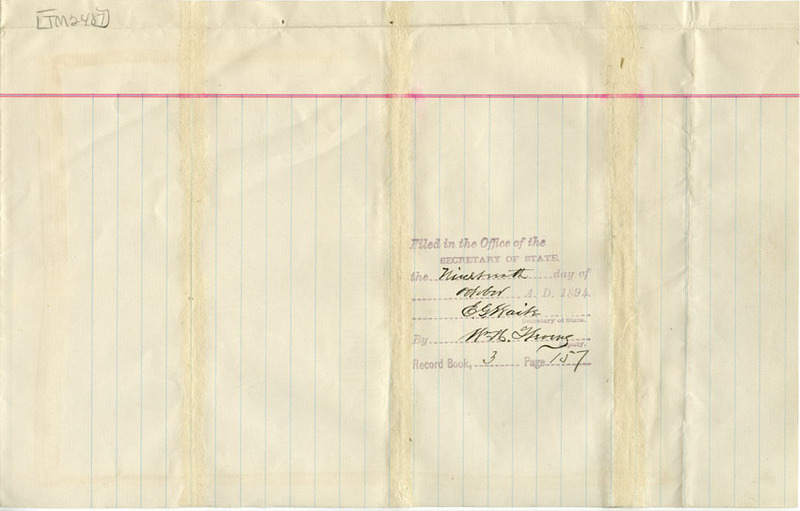 [TM2487]
Filed in the Office of the
SECRETARY OF STATE,
the Nineteenth day of
October A. D. 1894.
E G Waite
Secretary of State.
By Wm H.
Deputy.
Record Book, 3 Page 157